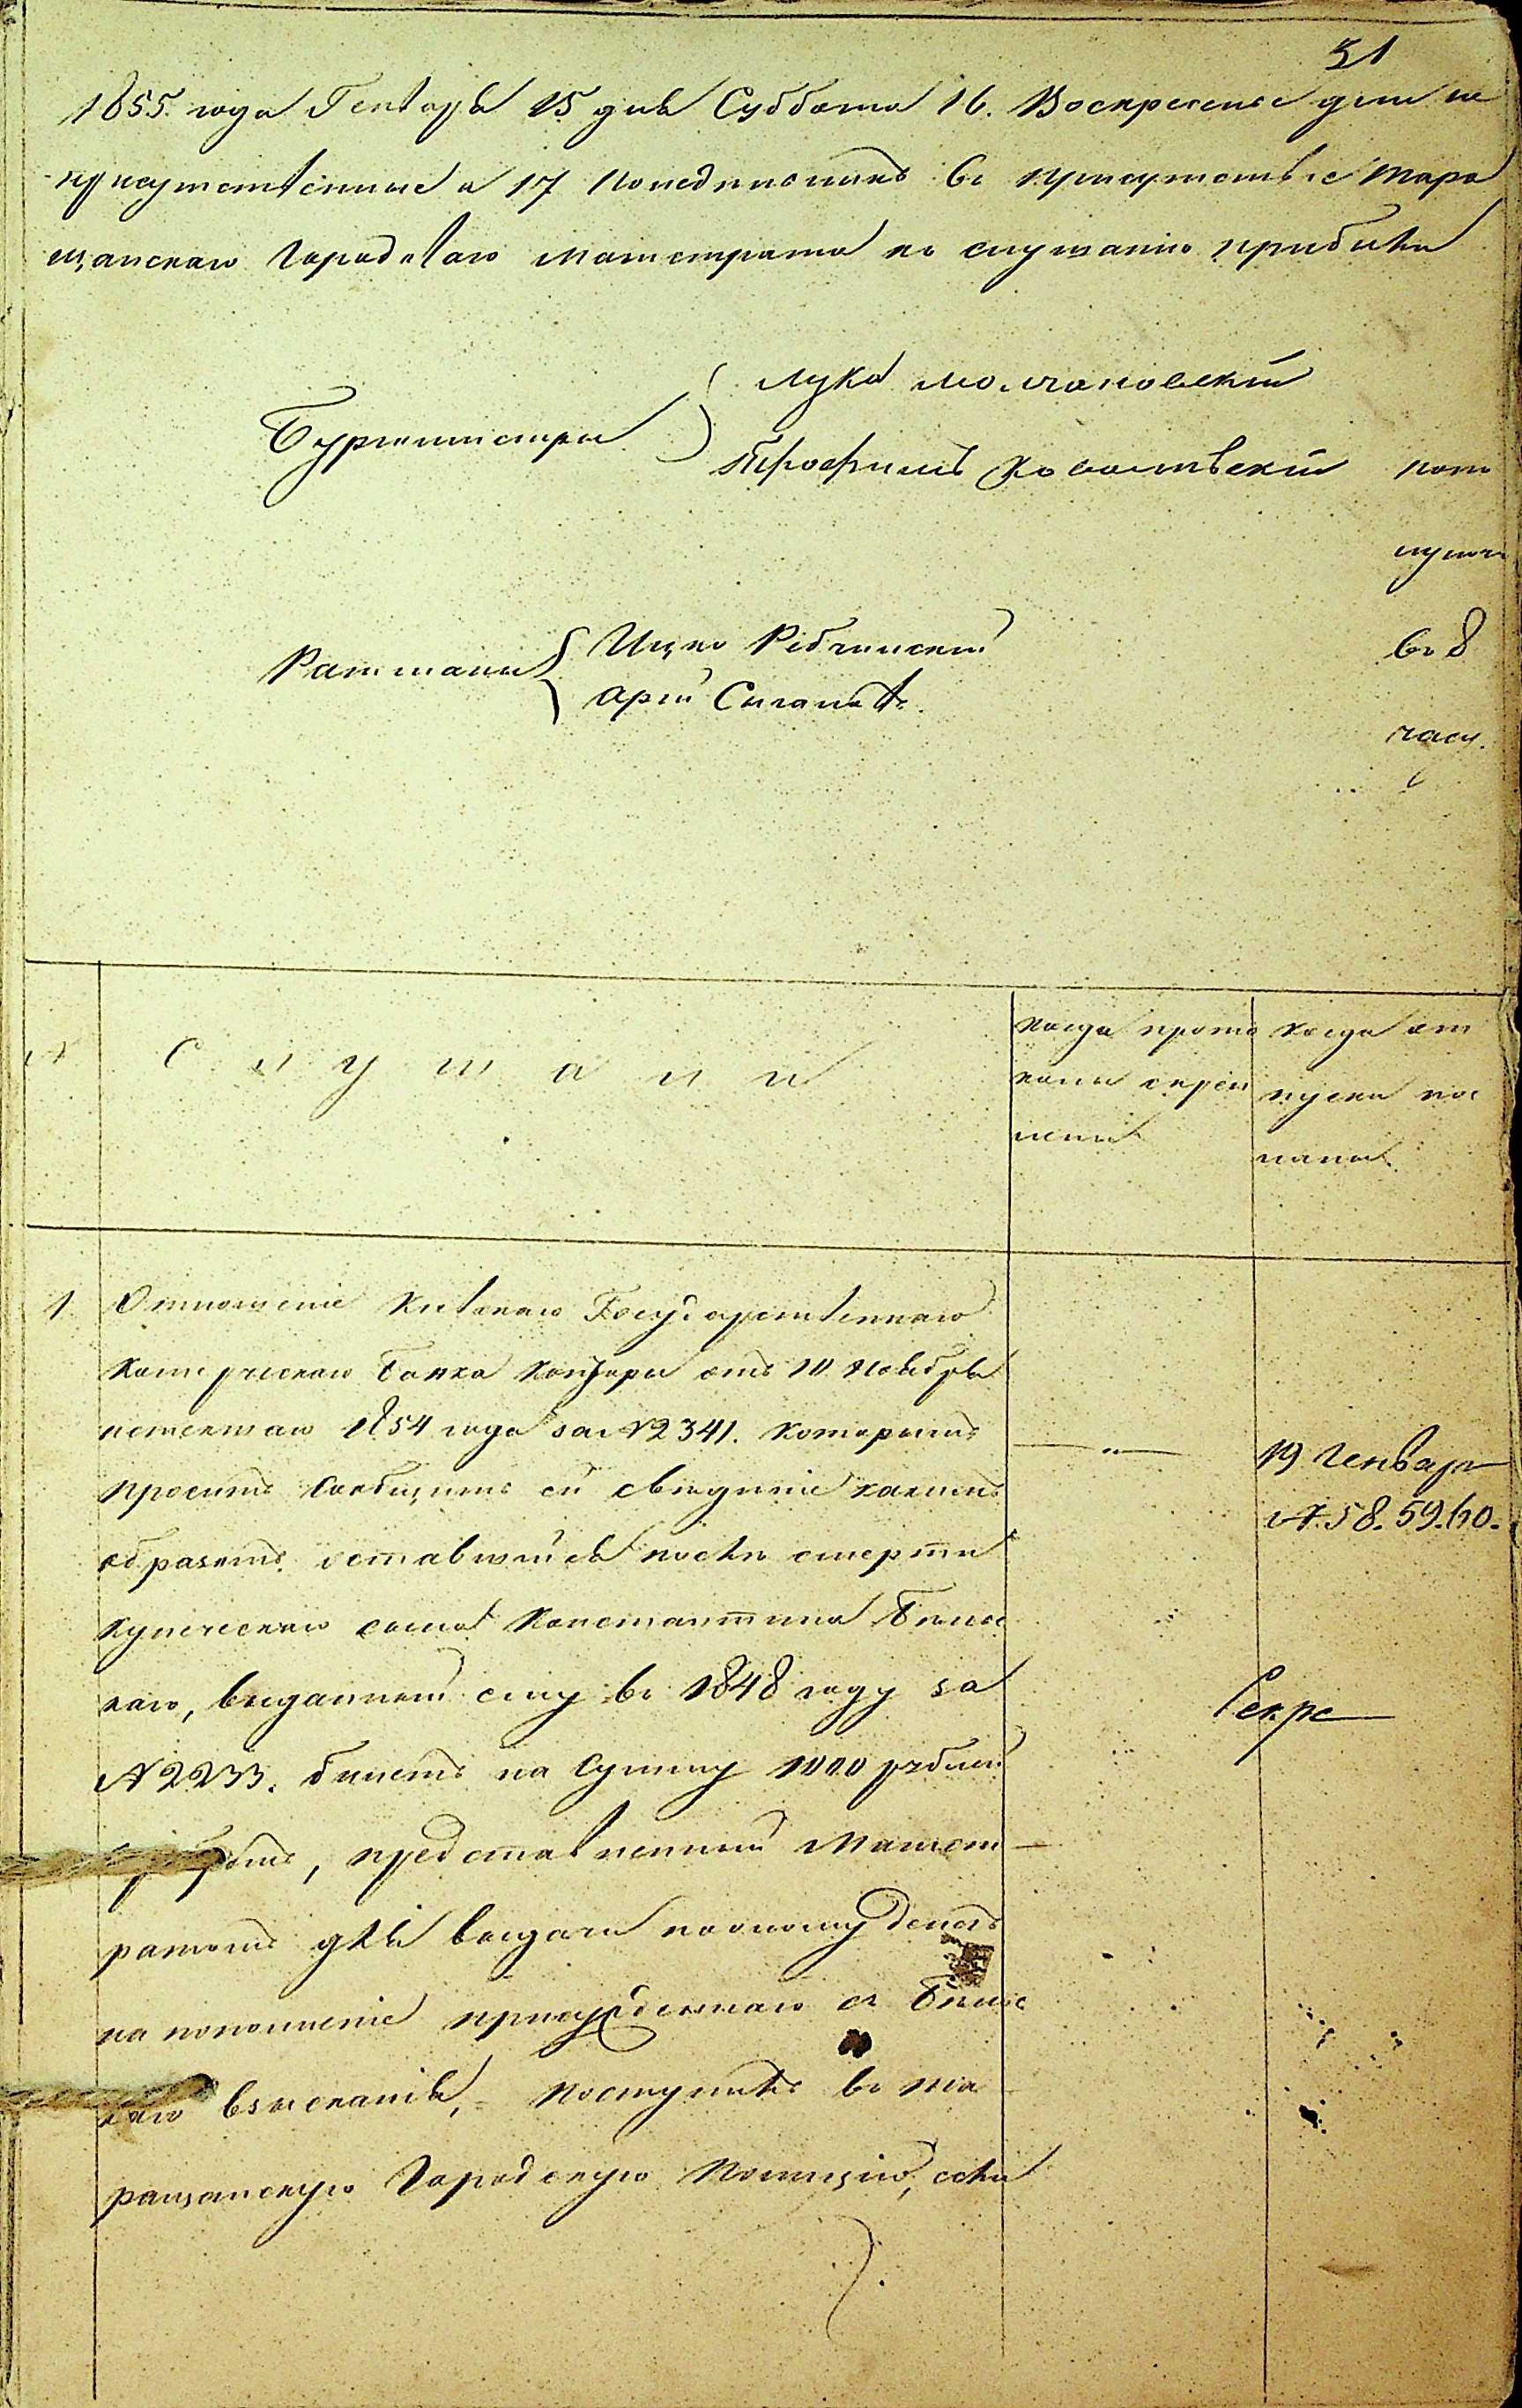 51
1855. года Генваря 15 дня Суббота 16. Воскресенье дни не
присутственные а 17 Понедельникъ въ присутствіе Тара
щанскаго Городоваго Магистрата къ слушанію прибыли
Бургомистры
Лука Молчановскій
Трофимъ
пополу
въ 8
часу.
Ратманы
Ицко
№
Слушали
когда прото
колы скреп
лены
когда от
пуски пос
ланы
1. Отношеніе Кіевскаго Государственнаго
Комерческаго Банка Конторы отъ 10 Ноября
истекшаго 1854 года за №2341. которымъ
проситъ сообщить ей сведеніе какимъ
образомъ оставшійся после смерти
купеческаго сына Константина
каго, выданный ему въ 1848 году за
№2233. билетъ на сумму 1000 рублей
серебромъ, представленный Магист
ратомъ для выдачи по оному денегъ
на пополненіе присужденнаго съ
каго взысканія, поступилъ въ Та
ращанскую Городскую Полицію, если
19 Генваря
№. 58. 59. 60.
Секре